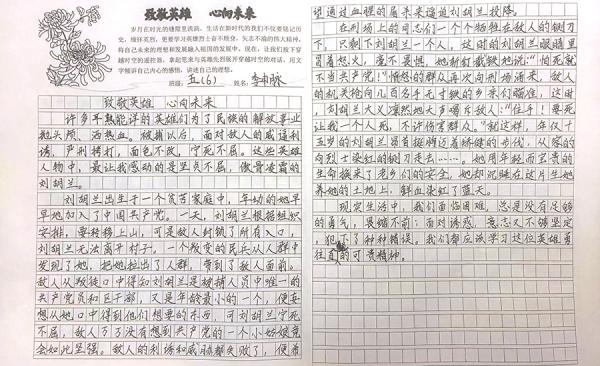 致敬英雄 心向未来
岁月在时光的缝隙里流淌，生活在新时代的我们不仅要铭记历史，缅怀英烈，更要学习英雄烈士奋不顾身、矢志不渝的伟大精神，将自己未来的理想和发展融入祖国的发展中。现在，让我们按下穿越时空的遥控器，拿起笔来与英雄先烈展开穿越时空的对话，用文字倾诉自己内心的感悟，讲述自己的理想。
班级：五（6） 姓名：
致敬英雄 心向未来
许多耳熟能详的英雄们为了民族的解放事业
抛头颅、洒热血。被捕以后，面对敌人的威逼利
诱，严刑拷打，面色不改，宁死不屈。这些英雄
人物中，最让我感动的是坚贞不屈，傲骨凌霜的
刘胡兰。
刘胡兰出生于一个贫苦家庭中，年幼的她早
早地加入了中国共产党。一天，刘胡兰根据组织
安排，要转移上山，可是敌人封锁了所有入口，
刘胡兰无法离开村子，一个叛变的民兵从人群中
发现了她，把她拉出了人群，带到敌人面前。
敌人从叛徒口中得知刘胡兰是被捕人员中唯一的
共产党员和区干部，又是年龄最小的一个，便妄
想从她口中得到他们想要的东西，可刘胡兰宁死
不屈，敌人万万没有想到共产党的一个小姑娘竟
会如此坚强。敌人的利诱和威胁都失败了，便希
望通过血腥的屠杀来逼迫刘胡兰投降。
在刑场上的同志们一个个牺牲在敌人的铡刀
下，只剩下刘胡兰一个人，这时的刘胡兰眼睛里
冒着怒火，毫不畏惧，她斩钉截铁地说：“怕死就
不当共产党！”愤怒的群众再次向刑场涌来，敌人
的机关枪向几百名手无寸铁的乡亲们瞄准，这时
，刘胡兰大义凛然地大声喝斥敌人：“住手！要死
让我一个人死，不许伤害群众。”就这样，年仅十
五岁的刘胡兰踏着挺拔的步伐，从容的
向烈士染红的铡刀走去……。她用年轻而宝贵的
生命换来了老乡们的安全，她却沉睡在这片生她
养她的土地上，鲜血染红了蓝天。
现实生活中，我们面临困难，总是没有足够
的勇气，畏缩不前；面对诱惑，意志又不够坚定
，犯下了种种错误。我们都应该学习这位英雄勇
往直的可贵精神。